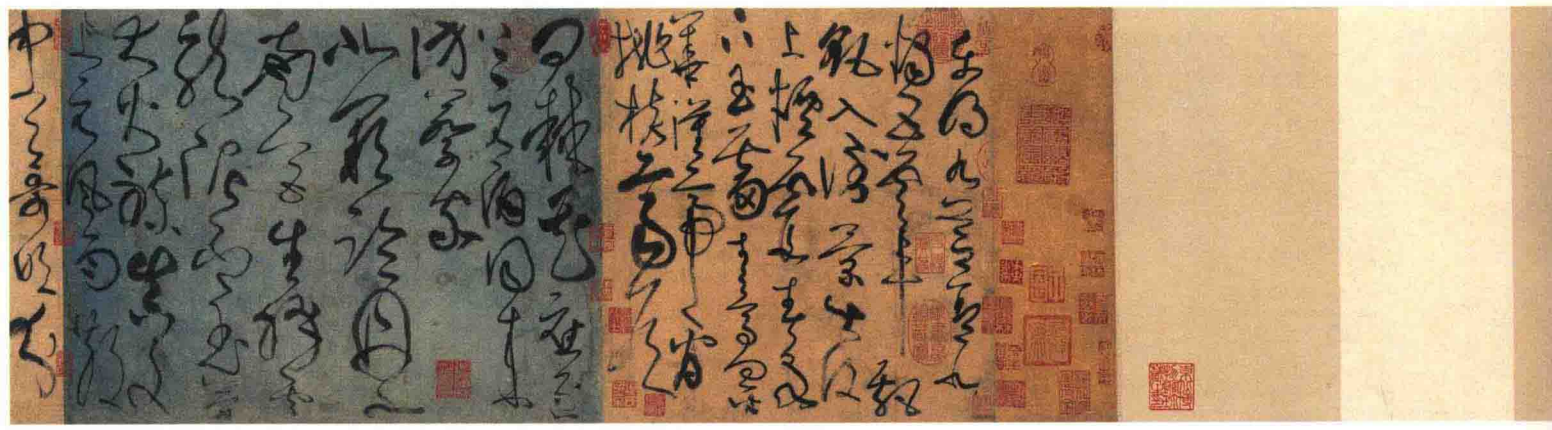 東明九芝蓋北
燭五雲車飄
飖入倒景出沒
上煙霞春泉
下玉霤青鳥向金
華漢帝看
桃核齊侯
問棘花應逐
上元酒同來
訪蔡家
北闕臨丹水
南宮生絳雲
龍泥印玉簡
大火練真文
上元風雨散
中天哥吹分